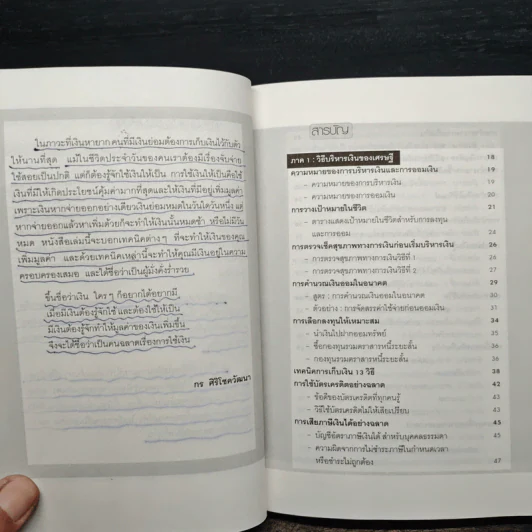 ในภาวะที่เงินหายากคนที่มีเงินย่อมต้องการเก็บเงินไว้กับตัว
ให้นานที่สุด แม้ในชีวิตประจำวันของคนเราต้องมีเรื่องจับจ่าย
ใช้สอยเป็นปกติ แต่ก็ต้องรู้จักใช้เงินให้เป็น การใช้เงินให้เป็นคือใช้
เงินที่มีให้เกิดประโยชน์คุ้มค่ามากที่สุดและให้เงินที่มีอยู่เพิ่มมูลค่า
เพราะเงินหากจ่ายออกอย่างเดียวเงินย่อมหมดในวันใดวันหนึ่ง แต่
หากจ่ายออกแล้วหาเพิ่มด้วยก็จะทำให้เงินนั้นหมดช้า หรือไม่มีวัน
หมด หนังสือเล่มนี้จะบอกเทคนิคต่างๆ ที่จะทำให้เงินของคุณ
เพิ่มมูลค่า และด้วยเทคนิคเหล่านี้จะทำให้คุณมีเงินอยู่ในความ
ครอบครองเสมอ และได้ชื่อว่าเป็นผู้มั่งคั่งร่ำรวย
ขึ้นชื่อว่าเงิน ใครๆ ก็อยากได้อยากมี
เมื่อมีเงินต้องรู้จักใช้ และต้องใช้ให้เป็น
มีเงินต้องรู้จักทำให้มูลค่าของเงินเพิ่มขึ้น
จึงจะได้ชื่อว่าเป็นคนฉลาดเรื่องการใช้เงิน
กร ศิริโชควัฒนา
สารบัญ
ภาค 1 : วิธีบริหารเงินของเศรษฐี 18
ความหมายของการบริหารเงินและการออมเงิน 19
- ความหมายของการบริหารเงิน 19
- ความหมายของการออมเงิน 20
การวางเป้าหมายในชีวิต 21
- ตารางแสดงเป้าหมายในชีวิตสำหรับการลงทุน
และการออม 24
การตรวจเช็คสุขภาพทางการเงินก่อนเริ่มบริหารเงิน 26
- การตรวจสุขภาพทางการเงินวิธีที่ 1 26
- การตรวจสุขภาพทางการเงินวิธีที่ 2 27
การคำนวณเงินออมในอนาคต 29
- สูตร : การคำนวณเงินออมในอนาคต 30
- ตัวอย่าง : การจัดสรรค่าใช้จ่ายก่อนออมเงิน 31
การเลือกลงทุนให้เหมาะสม 34
- นำเงินไปฝากออมทรัพย์ 36
- ซื้อกองทุนรวมตราสารหนี้ระยะสั้น 36
- กองทุนรวมตราสารหนี้ระยะสั้น 36
เทคนิคการเก็บเงิน 13 วิธี 38
การใช้บัตรเครดิตอย่างฉลาด 42
- ข้อดีของบัตรเครดิตที่ทุกคนรู้ 42
- วิธีใช้บัตรเครดิตไม่ให้เสียเปรียบ 44
การเสียภาษีเงินได้อย่างฉลาด 45
- บัญชีอัตราภาษีเงินได้ สำหรับบุคคลธรรมดา 45
- ความผิดจากการไม่ชำระภาษีในกำหนดเวลา
หรือชำระไม่ถูกต้อง 47